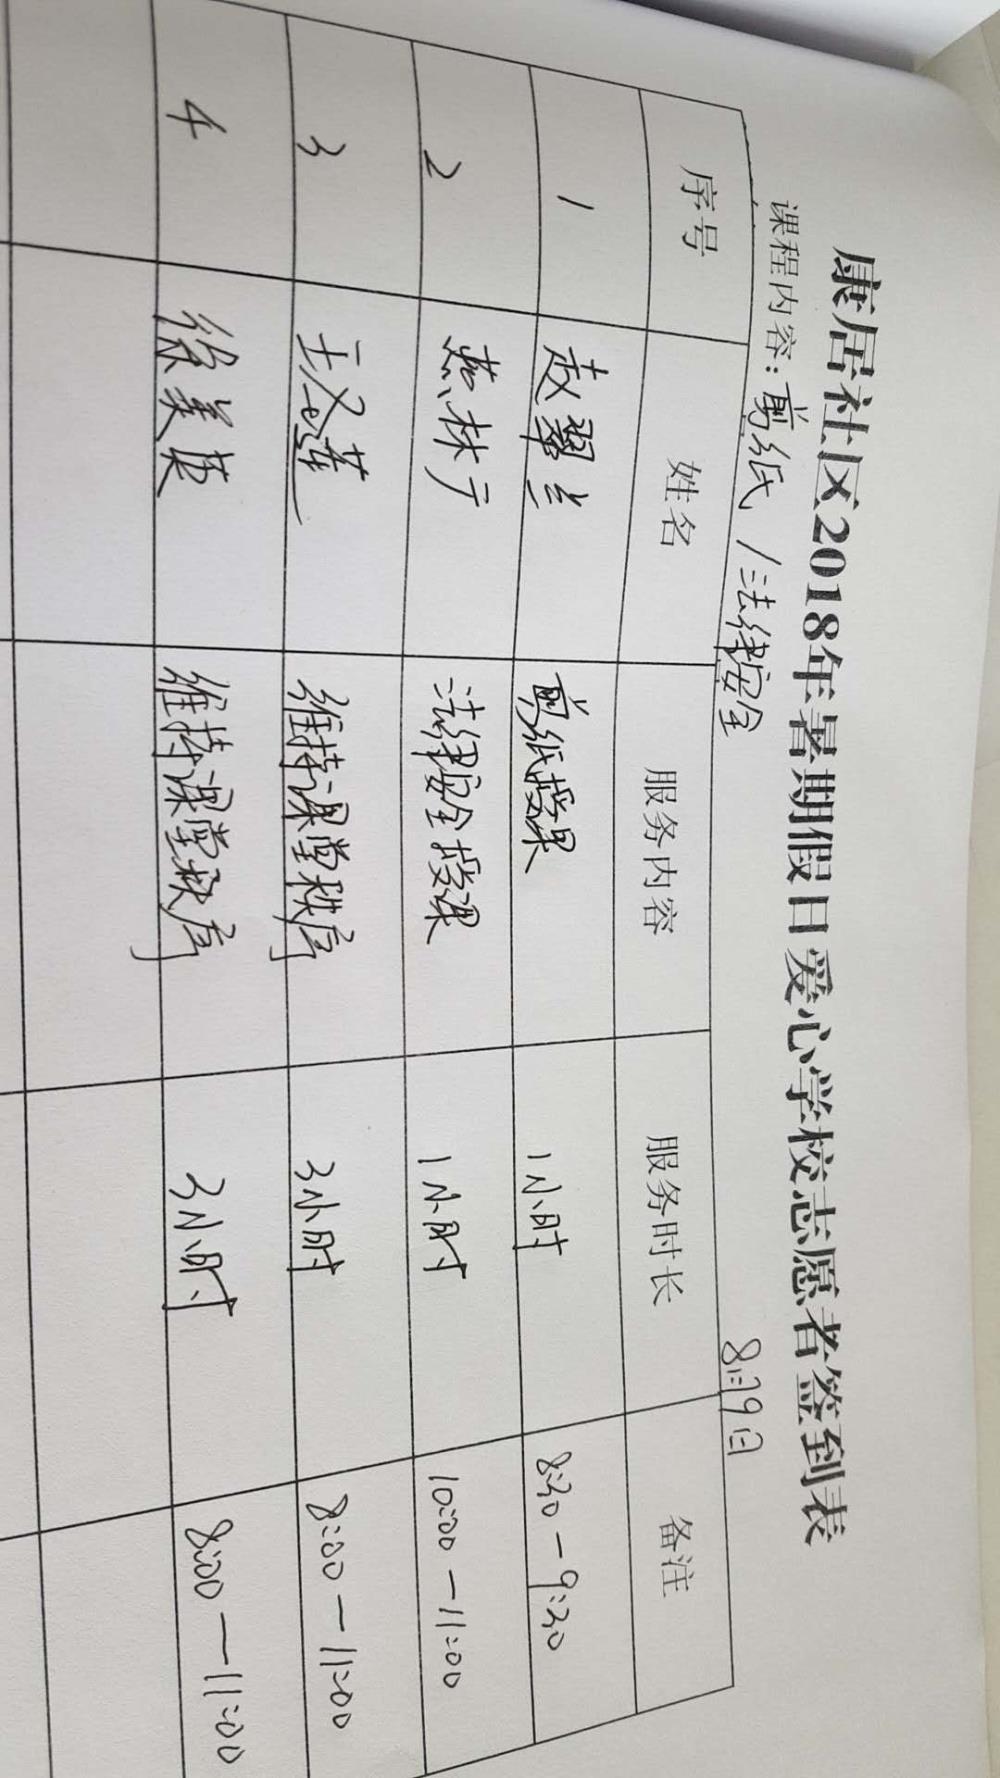 康居社区2018年暑期假日爱心学校志愿者签到表
课程内容：剪纸/法律安全 8月9日
序号 姓名 服务内容 服务时长 备注
1 赵翠兰 剪纸授课 1小时 8:30—9:30
2 燕林广 法律安全授课 1小时 10:00—11:00
3 王爱莲 维持课堂秩序 3小时 8:00—11:00
4 徐美英 维持课堂秩序 3小时 8:00—11:00